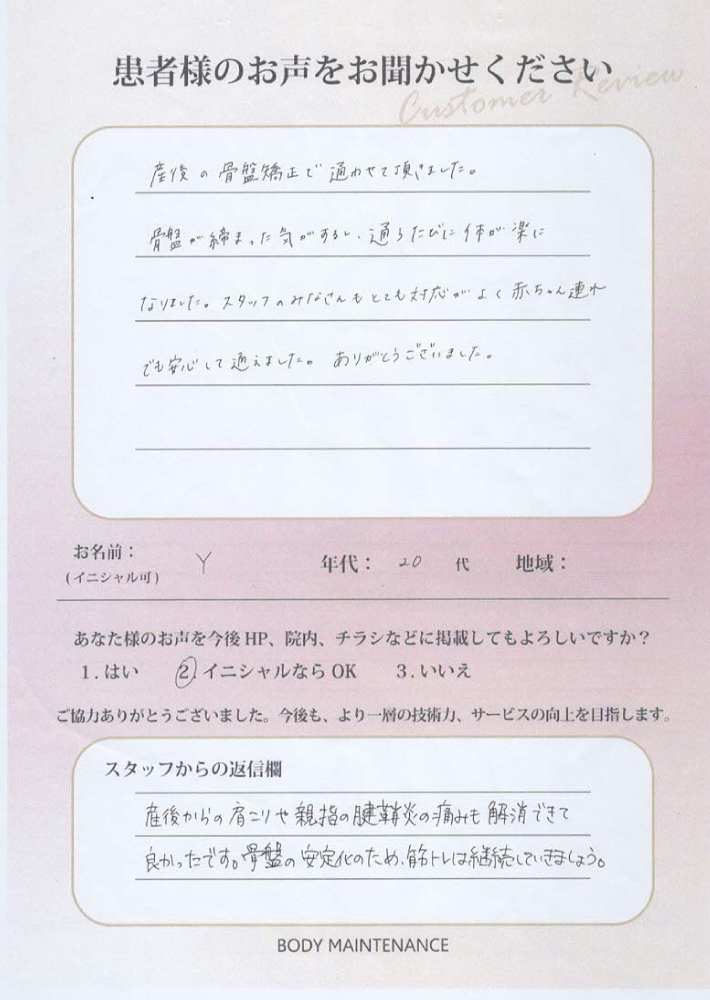 患者様のお声をお聞かせください
Customer Review
産後の骨盤矯正で通わせて頂きました。
骨盤が締まった気がするし、通うたびに体が楽に
なりました。スタッフのみなさんもとても対応がよく赤ちゃん連れ
でも安心して通えました。 ありがとうございました。
お名前： Y 年代： 20 代 地域：
(イニシャル可)
あなた様のお声を今後 HP、院内、チラシなどに掲載してもよろしいですか？
1. はい 2. イニシャルなら OK 3. いいえ
ご協力ありがとうございました。今後も、より一層の技術力、サービスの向上を目指します。
スタッフからの返信欄
産後からの肩こりや親指の腱鞘炎の痛みも解消できて
良かったです。骨盤の安定化のため、筋トレは継続していきましょう。
BODY MAINTENANCE